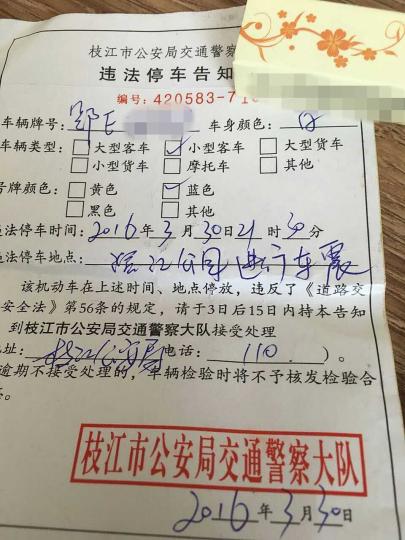 枝江市公安局交通警察
违法停车告知
编号: 420583-71
车辆牌号: 鄂E 车身颜色: 白
车辆类型: 大型客车 小型客车 大型货车
小型货车 摩托车 其他
号牌颜色: 黄色 蓝色
黑色 其他
违法停车时间: 2016年3月30日21时30分
违法停车地点: 滨江公园进行车震
该机动车在上述时间、地点停放，违反了《道路交
安全法》第56条的规定，请于3日后15日内持本告知
到枝江市公安局交通警察大队接受处理
地址: 枝江公安局 电话: 110 )。
逾期不接受处理的，车辆检验时将不予核发检验合
枝江市公安局交通警察大队
2016年3月30